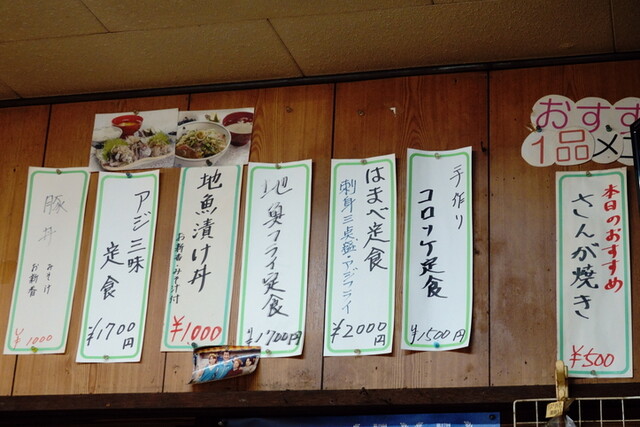 おすす
1品メニ
本日のおすすめ
さんが焼き
¥500
手作り
コロッケ定食
¥1500円
はまべ定食
刺身三点盛・アジフライ
¥2000円
地魚フライ定食
¥1700円
地魚漬け丼
お新香・みそ汁付
¥1000
アジ三味
定食
¥1700円
豚丼
みそ汁
お新香
¥1000